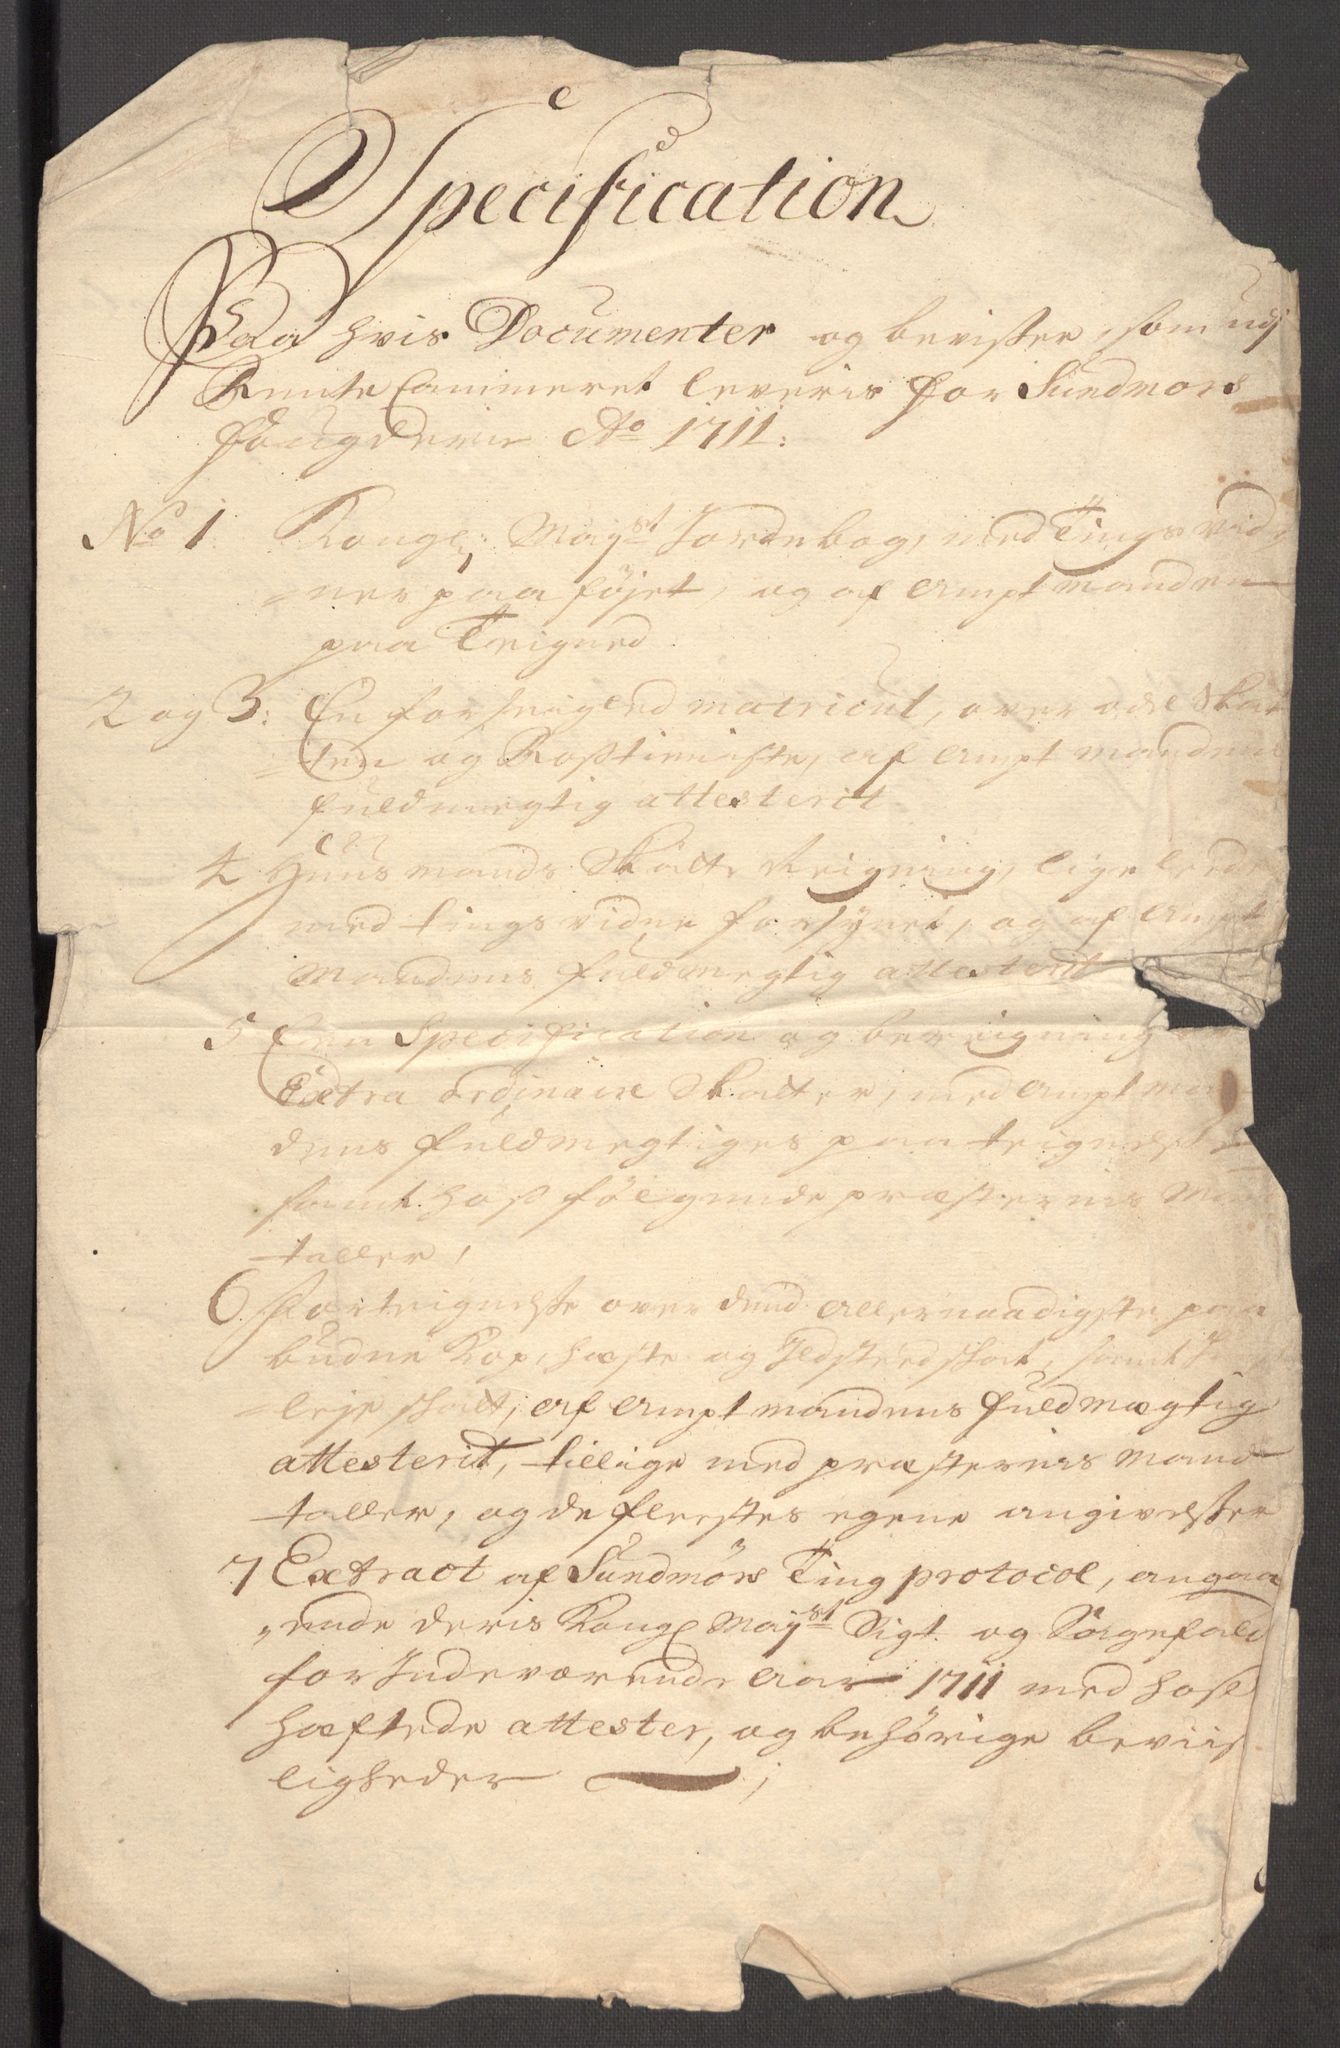 Specification
Paa hvis Documenter og bevister, som udj
Rente Cammeret leveris for Sundmørs
fougderie Ao 1711:
No 1 Kongl: Mayst Jordebog, med Tings vid,
=ner paa føjet, og af Ampt manden
paa Teigned
2 og 3: En forseigled matricul, over odel Skat
=ten og Rostieniste, af Ampt mandens
fuldmegtig attesterit
4 Huusmands Skatte Reigning, lige leedes
med tings vidne forsynet, og af Ampt
Mandens fuldmegtig attesterit
5 Een Specification og bereigning
Extra ordinaire Skatter, med Ampt man
dens fuldmegtiges paa teignelse
samt hos følgende præsternis Man
taller,
6. Forteignelse over dend allernaadigste paa
budne Kop, hæste og Ildsteed skat, samt
=leje skatt, af Ampt mandens fuldmægtig
attesterit, tillige med præsternis mand
taller, og de fleestes egene angivelser
7 Extract af Sundmørs Ting protocol, angaa
„ende deris Kongl Mayst Sigt og Sagefald
for Indeværende Aar 1711 med hos
hæftede attester, og behørige beviis
ligheder ;